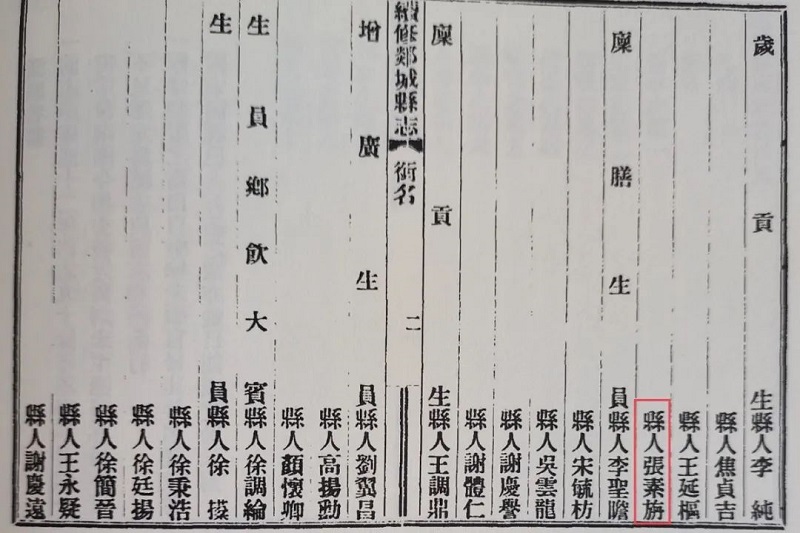 歲貢生縣人李純
縣人焦貞吉
縣人王延樞
縣人張素旃
廩膳生員縣人李聖瞻
縣人宋毓枋
縣人吳雲龍
縣人謝慶譽
縣人謝體仁
廩貢生縣人王調鼎
續修郯城縣志 銜名 二
增廣生員縣人劉翼昌
縣人高揚勳
縣人顏懷卿
生員鄉飲大賓縣人徐調綸
生員縣人徐
縣人徐秉浩
縣人徐廷揚
縣人徐簡晉
縣人王永疑
縣人謝慶遠